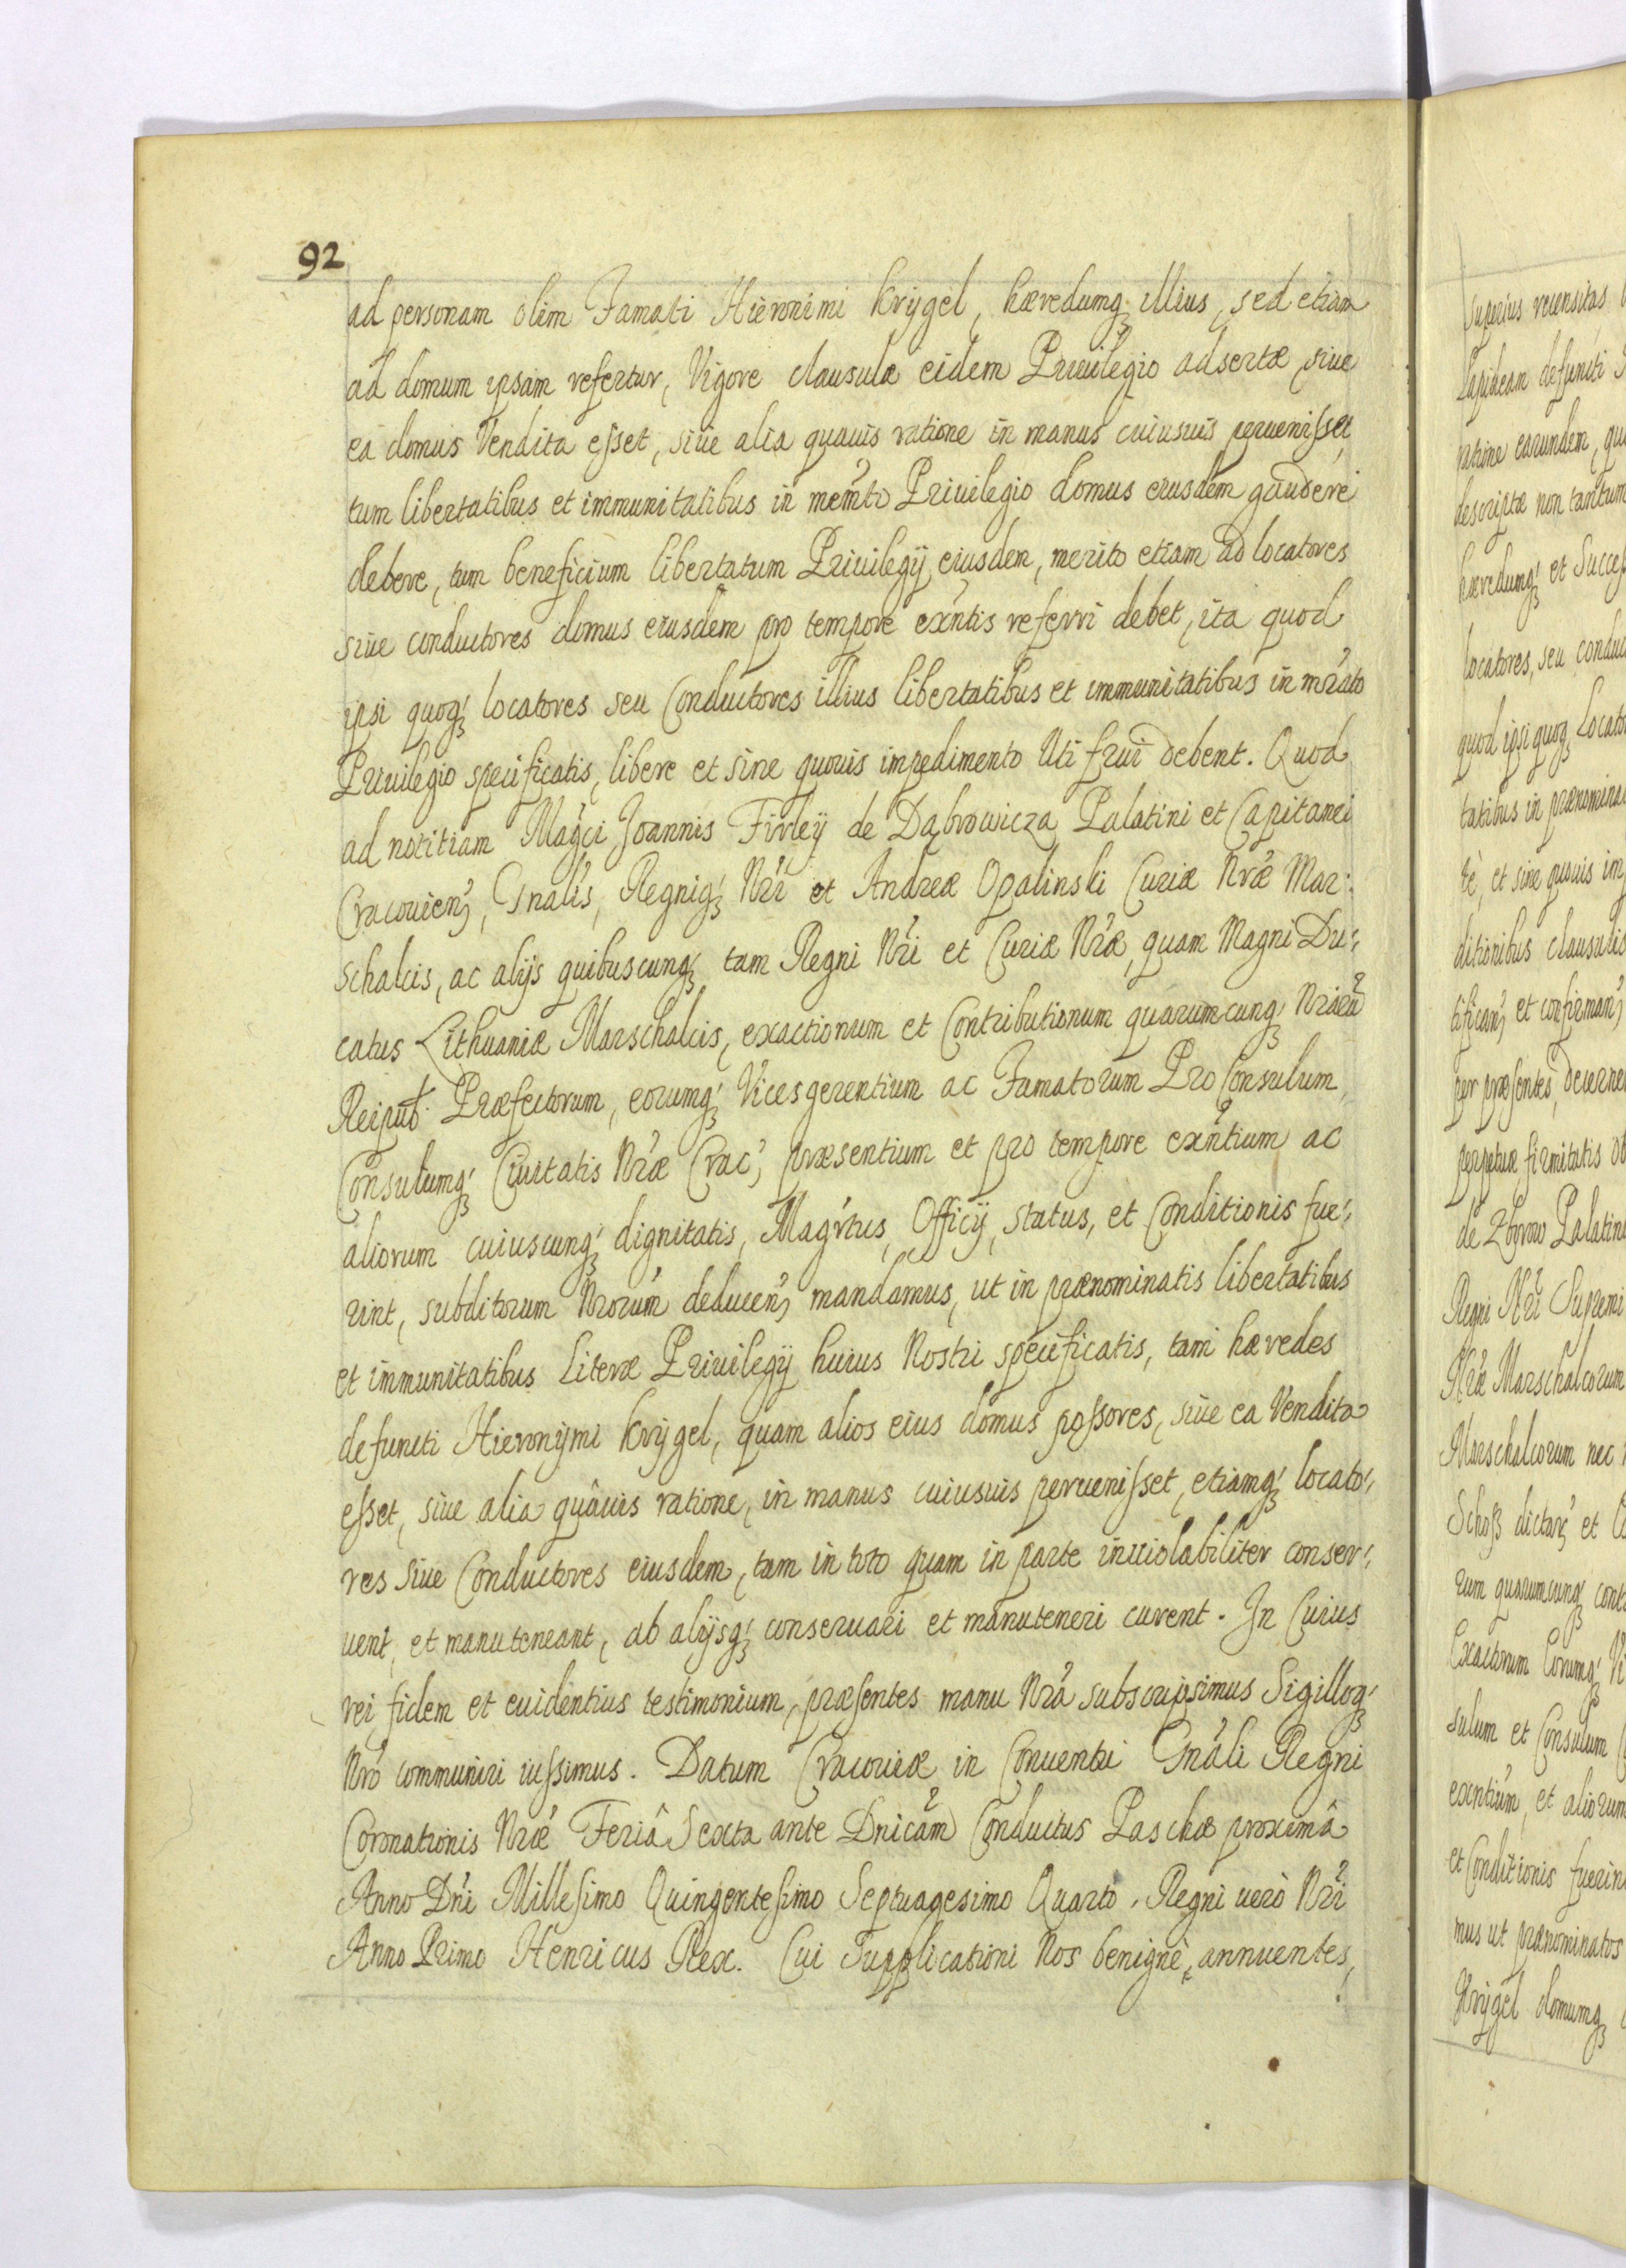 92
ad personam olim Famati Hieronimi Krygel, hæredumq; illius, sed etiam
ad domum ipsam refertur, Vigore clausulæ eidem Priuilegio adsertæ, siue
ea domus Vendita esset, siue alia quauis ratione in manus cuiusuis peruenisset,
tum libertatibus et immunitatibus in memto Priuilegio domus eiusdem gaudere
debere, tum beneficium libertatum Priuilegij eiusdem, merito etiam ad locatores
siue conductores domus eiusdem pro tempore exntis referri debet, ita quod
ipsi quoq; locatores seu Conductores illius libertatibus et immunitatibus in mrato
Priuilegio specificatis, libere et sine quouis impedimento Uti frui debent. Quod
ad notitiam Magci Joannis Firleÿ de Dąbrowicza Palatini et Capitanei
Cracouien, Gnalis, Regniq; Nri et Andreæ Opalinski Curiæ Nræ Mar:
schalcis, ac alijs quibuscunq; tam Regni Nri et Curiæ Nræ, quam Magni Du:
catus Lithuaniæ Marschalcis, exactionum et Contributionum quarumcunq; Nrarũ
Reipub: Præfectorum, eorumq; Vicesgerentium ac Famatorum ProConsulum,
Consulumq; Ciuitatis Nræ Crac, præsentium et pro tempore exntium ac
aliorum cuiuscunq; dignitatis, Magrtus, Officij, status, et Conditionis fue:
rint, subditorum Nrorum deducen, mandamus, ut in prænominatis libertatibus
et immunitatibus Literæ Priuilegij huius Nostri specificatis, tam hæredes
defuncti Hieronÿmi Krÿgel, quam alios eius domus possores, siue ea Vendita
esset, siue alia quâuis ratione, in manus cuiusuis peruenisset, etiamq; locato:
res siue Conductores eiusdem, tam in toto quam in parte inuiolabiliter conser:
uent, et manuteneant, ab alijsq; conseruari et manuteneri curent. In Cuius
rei fidem et euidentius testimonium, præsentes manu Nra subscripsimus Sigilloq;
Nro communiri iussimus. Datum Cracouiæ in Conuentu Gnali Regni
Coronationis Nræ Feriâ Sexta ante Dnicam Conductus Paschæ proximâ
Anno Dni Millesimo Quingentesimo Septuagesimo Quarto, Regni uerò Nri
Anno Primo Henricus Rex. Cui Supplicationi Nos benignè annuentes,
Superius recensitas
Lapideam defuncti
ratione earundem,
descriptæ non tantum
hæredumq; et Succes
locatores, seu conduc
quod ipsi quoq; Locato
tatibus in prænomina
tè, et sine quouis im
ditionibus clausulis
tifican, et confirman,
per præsentes, decerne
perpetuæ firmitatis
de Zborow Palatini
Regni Nri Supremi
Nræ Marschalcorum
Marschalcorum nec
Schoß dictar, et
rum quarumcunq; cont
Exactorum Eorumq; Vi
sulum et Consulum
exntium, et aliorum
et Conditionis fuerin
mus ut prænominatos
Krÿgel domumq;